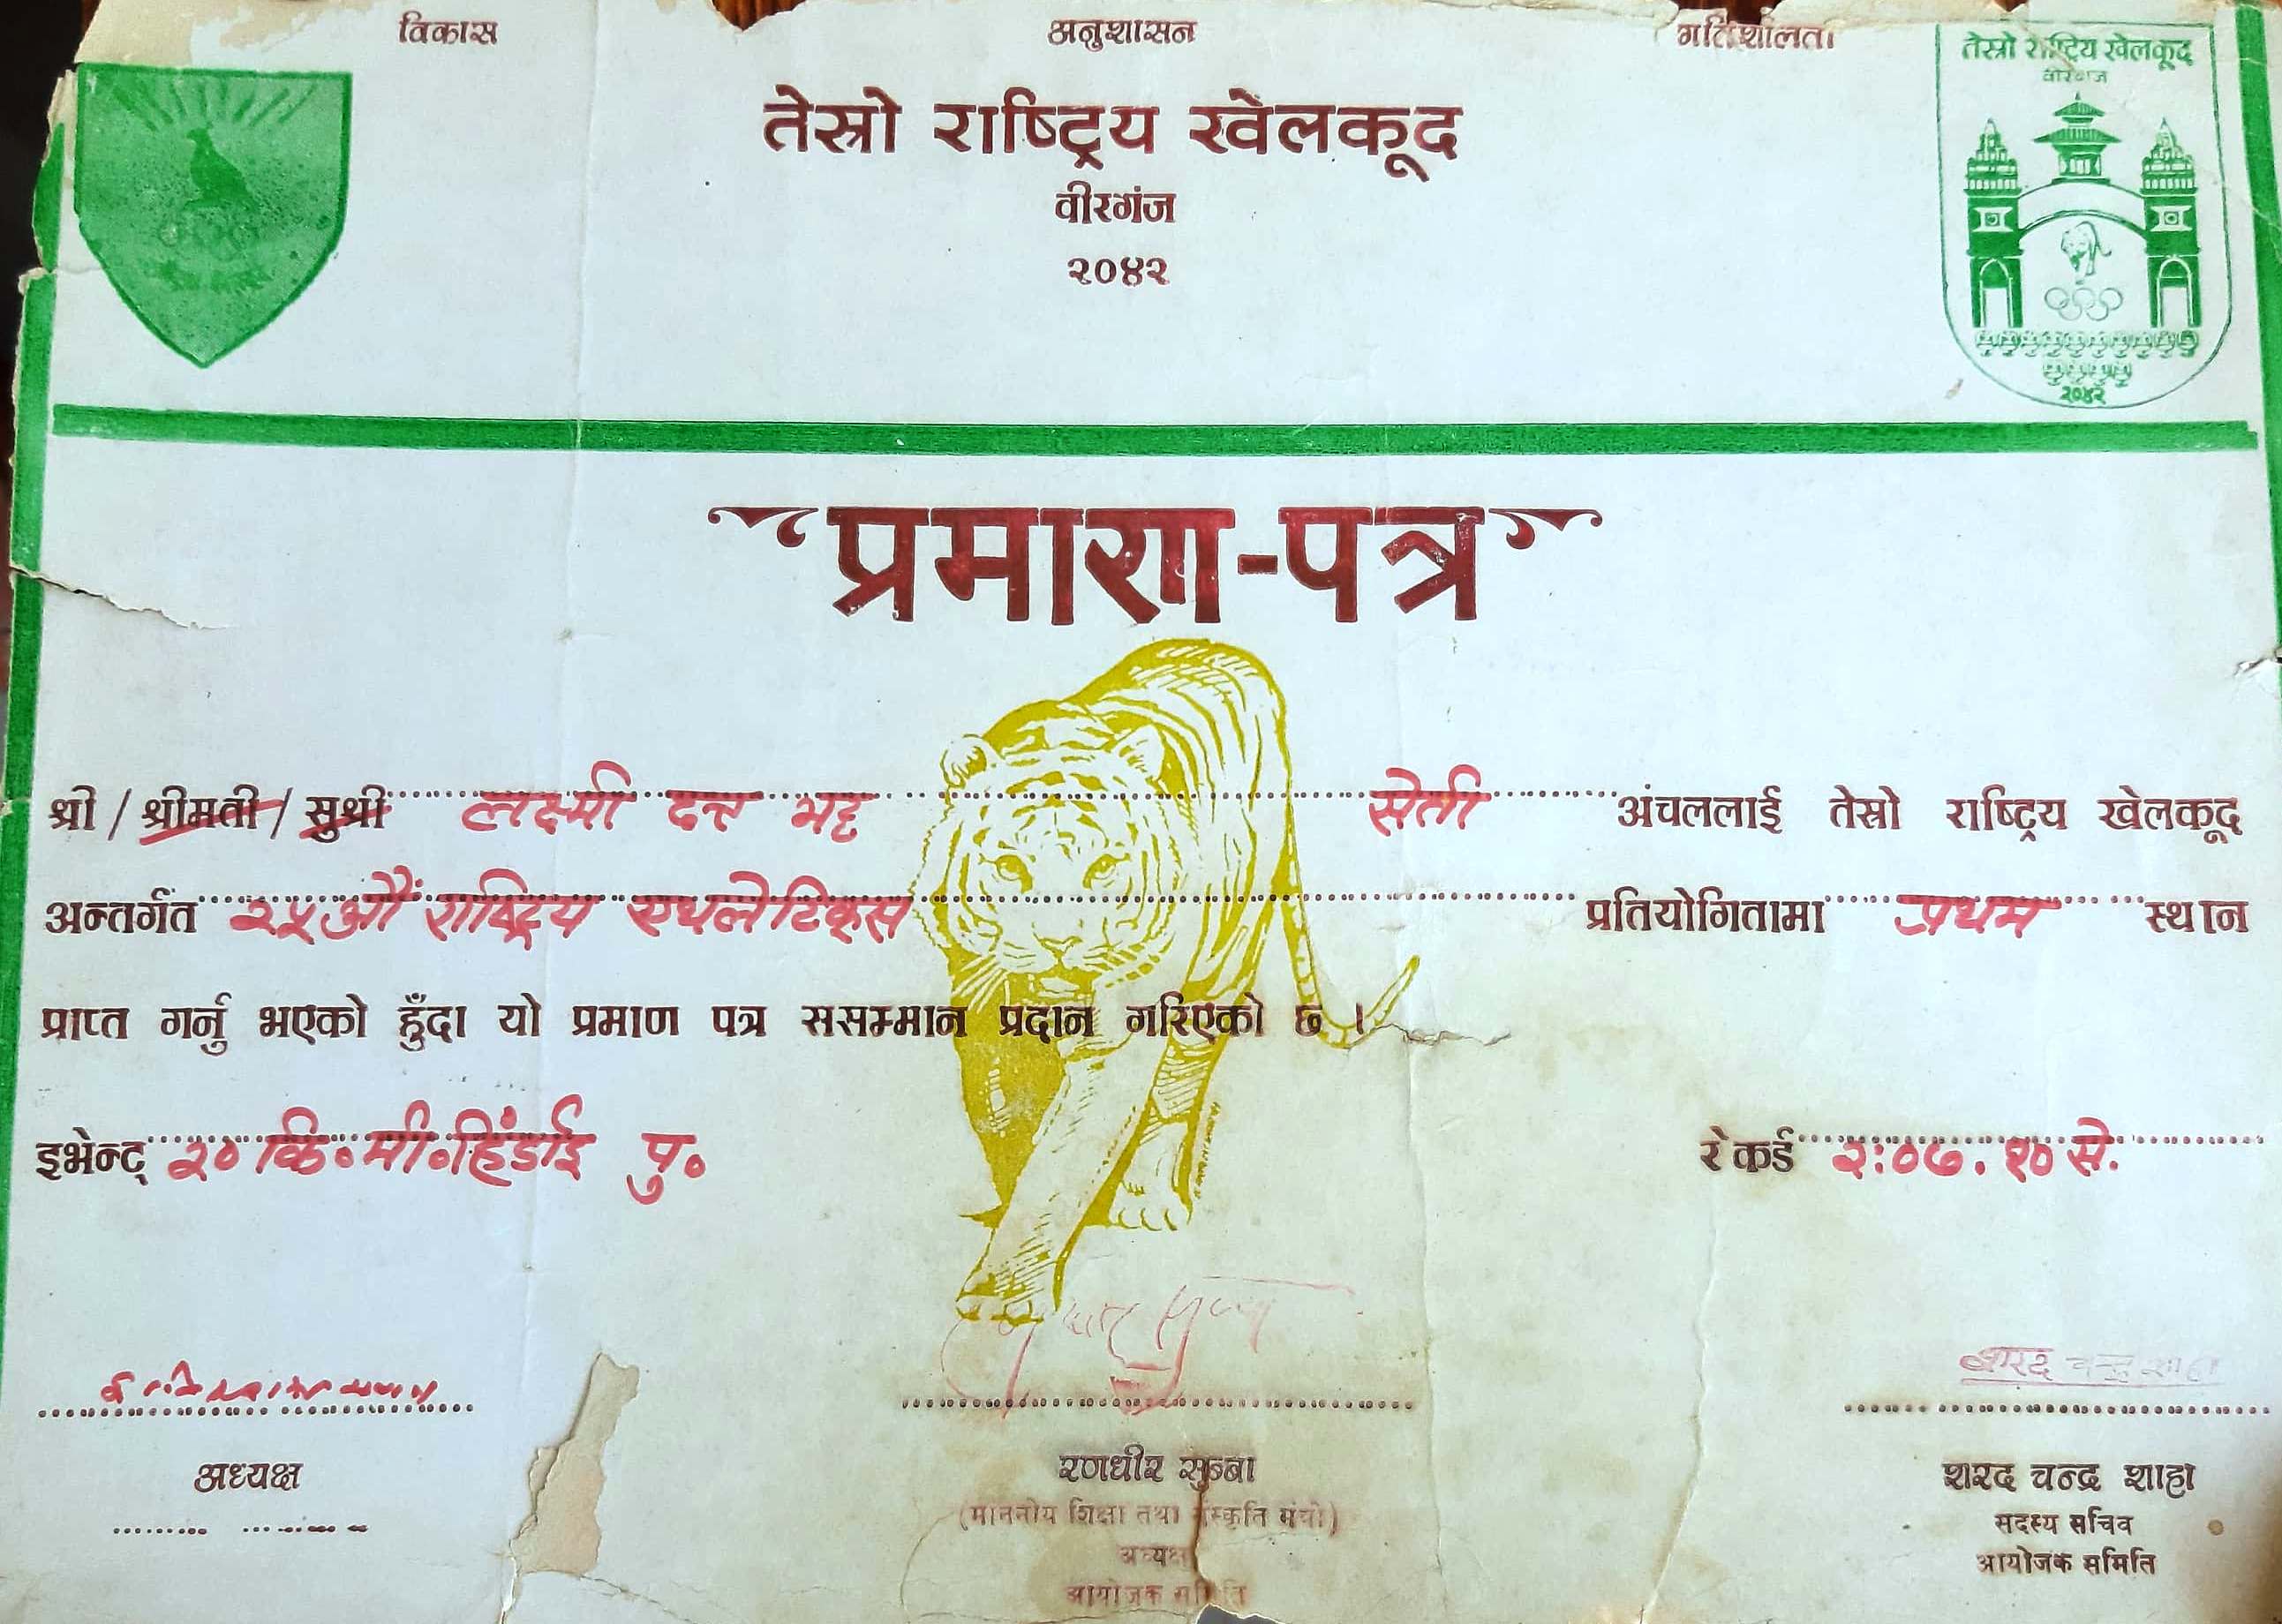 विकास अनुशासन गतिशीलता
तेस्रो राष्ट्रिय खेलकूद
वीरगंज
२०४२
तेस्रो राष्ट्रिय खेलकूद
वीरगंज
२०४२
प्रमाण-पत्र
श्री / श्रीमती / सुश्री लक्ष्मी दत्त भट्ट सेती अंचललाई तेस्रो राष्ट्रिय खेलकूद
अन्तर्गत २५औं राष्ट्रिय एथलेटिक्स प्रतियोगितामा प्रथम स्थान
प्राप्त गर्नु भएको हुँदा यो प्रमाण पत्र ससम्मान प्रदान गरिएको छ ।
इभेन्ट् २० कि.मी.हिंडाई पु. रेकर्ड २:०७.१० से.
शरद चन्द्र शाह
अध्यक्ष
रणधीर सुब्बा
(माननीय शिक्षा तथा संस्कृति मंत्री)
अध्यक्ष
आयोजक समिति
शरद चन्द्र शाह
सदस्य सचिव
आयोजक समिति